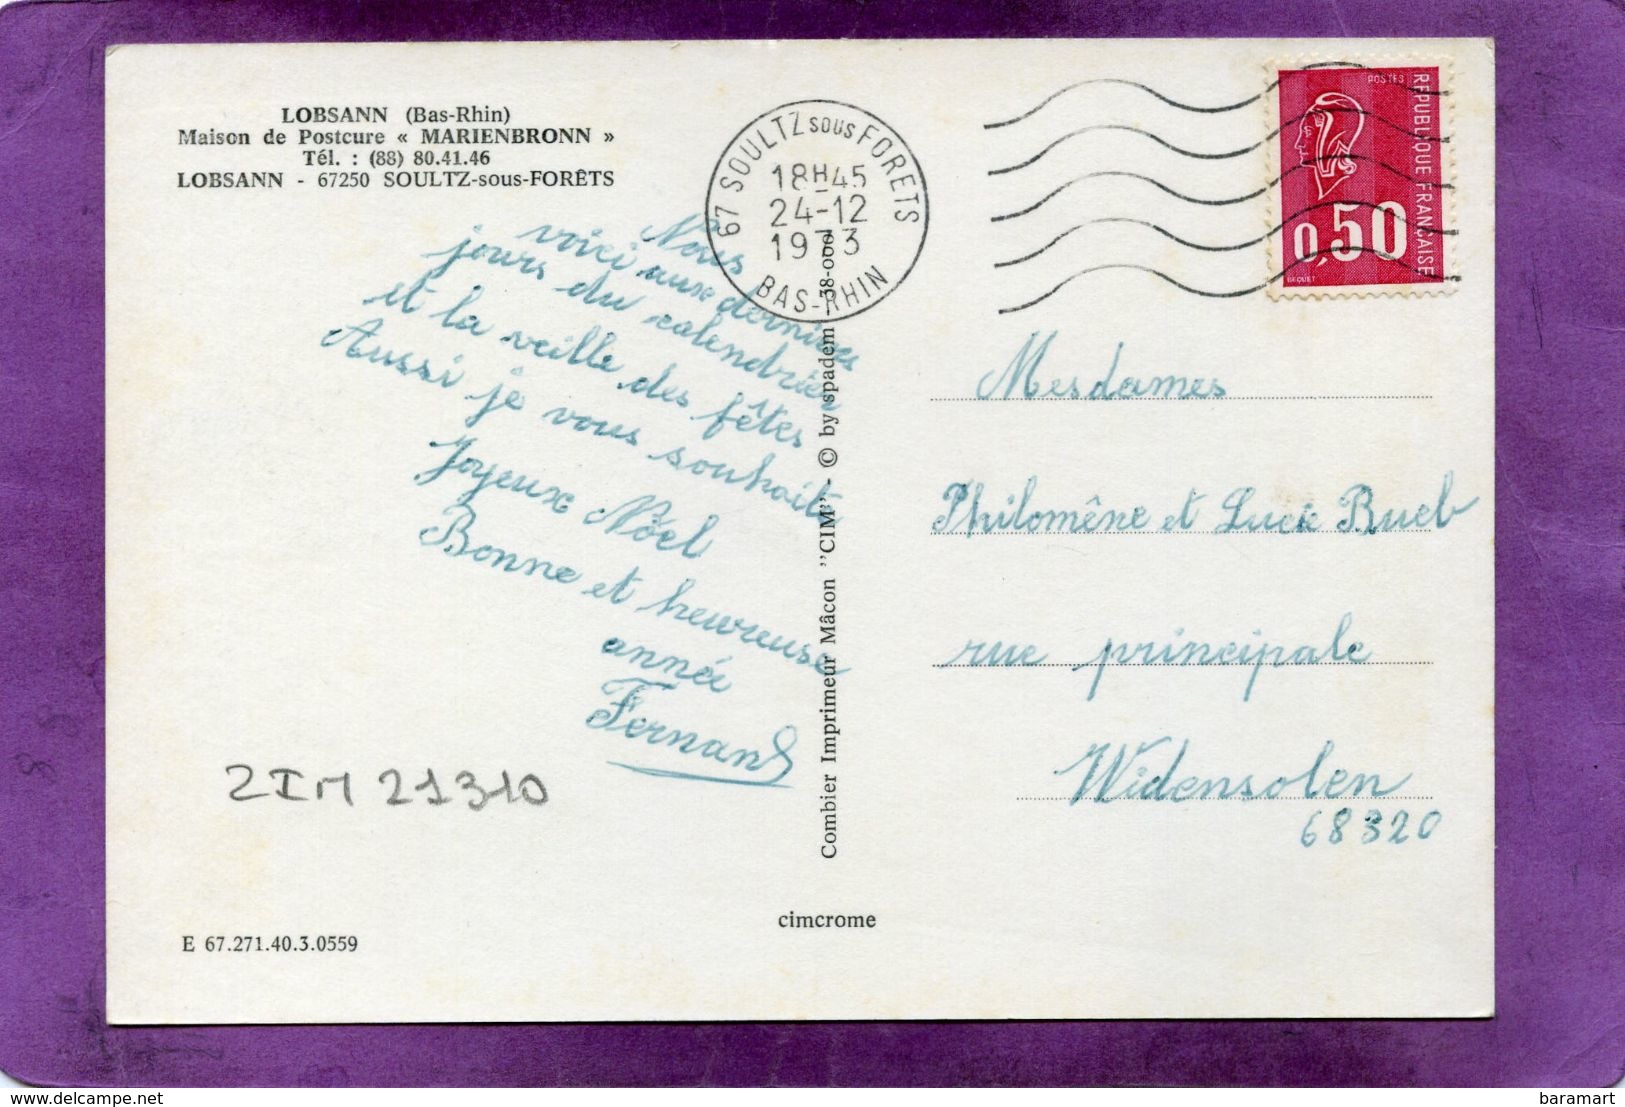 LOBSANN (Bas-Rhin)
Maison de Postcure « MARIENBRONN »
Tél. : (88) 80.41.46
LOBSANN - 67250 SOULTZ-sous-FORÊTS
Nous
voici aux derniers
jours du calendrier
et la veille des fêtes
Aussi je vous souhaite
Joyeux Nöel
Bonne et heureuse
année
Fernand
ZIM 21310
E 67.271.40.3.0559
cimcrome
Combier Imprimeur Mâcon "CIM" - © by spadem - 38-000
67 SOULTZ SOUS FORETS
18H45
24-12
1973
BAS-RHIN
POSTES
REPUBLIQUE FRANÇAISE
0,50
BEQUET
Mesdames
Philomène et Lucie Rueb
rue principale
Widensolen
68320
www.delcampe.net
baramart